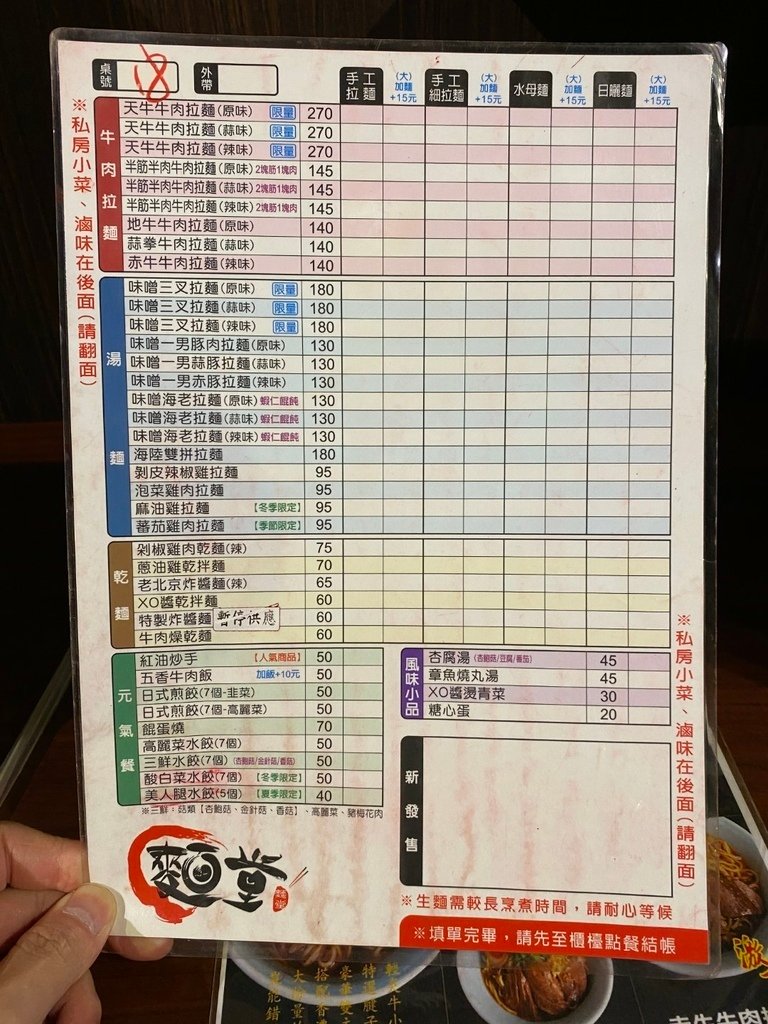 桌號 18 外帶
手工拉麵 (大)加麵+15元 手工細拉麵 (大)加麵+15元 水母麵 (大)加麵+15元 日曬麵 (大)加麵+15元
※私房小菜、滷味在後面(請翻面)
牛肉拉麵
天牛牛肉拉麵(原味) 限量 270
天牛牛肉拉麵(蒜味) 限量 270
天牛牛肉拉麵(辣味) 限量 270
半筋半肉牛肉拉麵(原味)2塊筋1塊肉 145
半筋半肉牛肉拉麵(蒜味)2塊筋1塊肉 145
半筋半肉牛肉拉麵(辣味)2塊筋1塊肉 145
地牛牛肉拉麵(原味) 140
蒜拳牛肉拉麵(蒜味) 140
赤牛牛肉拉麵(辣味) 140
湯麵
味噌三叉拉麵(原味) 限量 180
味噌三叉拉麵(蒜味) 限量 180
味噌三叉拉麵(辣味) 限量 180
味噌一男豚肉拉麵(原味) 130
味噌一男蒜豚拉麵(蒜味) 130
味噌一男赤豚拉麵(辣味) 130
味噌海老拉麵(原味)蝦仁餛飩 130
味噌海老拉麵(蒜味)蝦仁餛飩 130
味噌海老拉麵(辣味)蝦仁餛飩 130
海陸雙拼拉麵 180
剝皮辣椒雞拉麵 95
泡菜雞肉拉麵 95
麻油雞拉麵 【冬季限定】 95
蕃茄雞肉拉麵 【季節限定】 95
乾麵
剁椒雞肉乾麵(辣) 75
蔥油雞乾拌麵 70
老北京炸醬麵(辣) 65
XO醬乾拌麵 60
特製炸醬麵 暫停供應 60
牛肉燥乾麵 60
元氣餐
紅油炒手 【人氣商品】 50
五香牛肉飯 加飯+10元 50
日式煎餃(7個-韭菜) 50
日式煎餃(7個-高麗菜) 50
餛蛋燒 70
高麗菜水餃(7個) 50
三鮮水餃(7個) (杏鮑菇/金針菇/香菇) 50
酸白菜水餃(7個) 【冬季限定】 50
美人腿水餃(5個) 【夏季限定】 40
※三鮮：菇類【杏鮑菇、金針菇、香菇】、高麗菜、豬梅花肉
風味小品
杏腐湯(杏鮑菇/豆腐/番茄) 45
章魚燒丸湯 45
XO醬燙青菜 30
糖心蛋 20
新發售
※私房小菜、滷味在後面(請翻面)
麵堂
※生麵需較長烹煮時間，請耐心等候
※填單完畢，請先至櫃檯點餐結帳